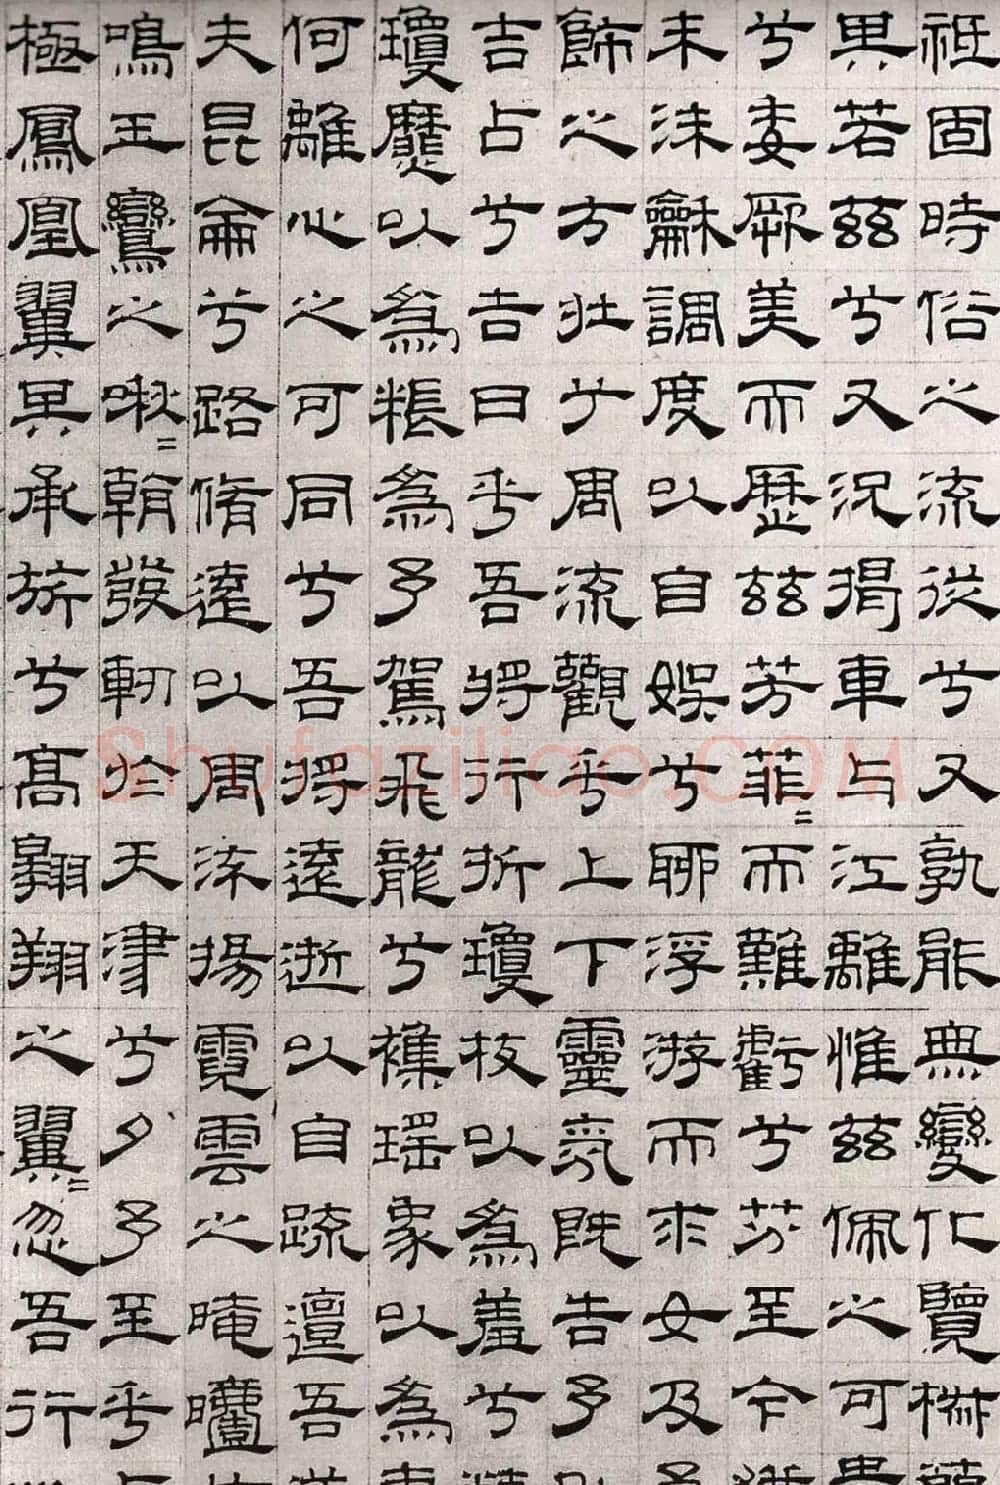 祗固時俗之流從兮又孰能無變化覽椒
其若兹兮又況揭車与江離惟兹佩之可
兮委厥美而歷兹芳菲=而難虧兮芬至今
未沬龢調度以自娛兮聊浮游而求女及
飾之方壯兮周流觀乎上下靈氛既告予
吉占兮吉日乎吾將行折瓊枝以爲羞兮
瓊爢以爲粻爲予駕飛龍兮襍瑤象以爲
何離心之可同兮吾將遠逝以自疏邅吾
夫昆侖兮路脩遠以周流揚霓雲之晻
鳴玉鸞之啾=朝發軔於天津兮夕予至乎
極鳳凰翼其承旂兮高翱翔之翼=忽吾行
Shufaziliao.COM